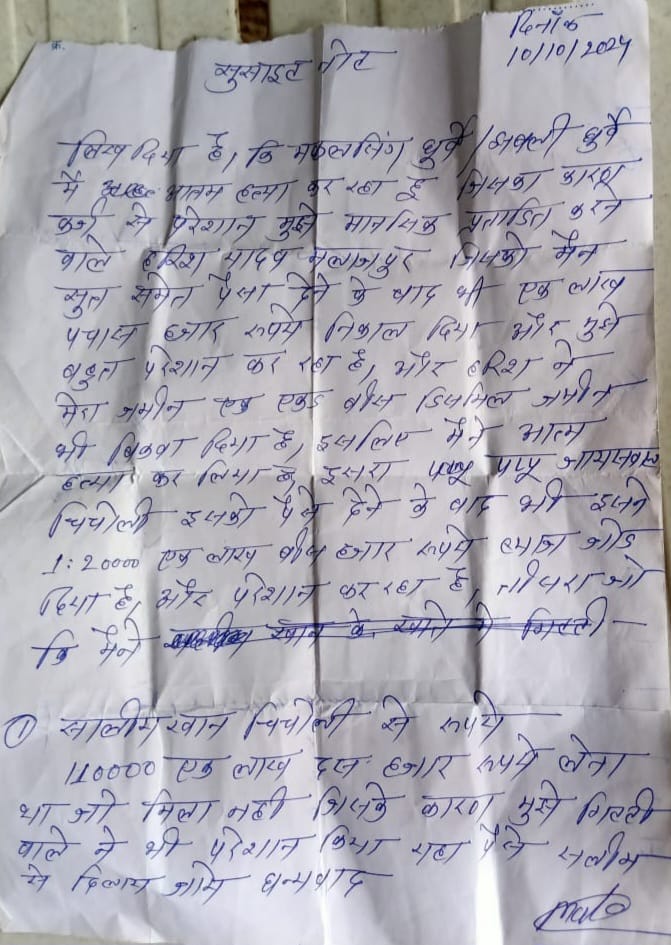 दिनाँक
10/10/2024
सुसाइट नोट
लिख दिया है, कि मकलसिंग धुर्वे / धुर्वे
मै आतम हत्या कर रहा हू जिसका कारण
कर्ज से परेशान मुझे मानसिक प्रताडित करने
वाले हरिश यादव मलाजपुर जिसको मैने
सुत समेत पैसा देने के बाद भी एक लाख
पचास हजार रूपये निकाल दिया और मुझे
बहुत परेशान कर रहा है, और हरिश ने
मेरा जमीन एक एकड बीस डिसमिल जमीन
भी बिकवा दिया है, इसलिए मैने आत्म
हत्या कर लिया है, दुसरा पप्पु जायसवाल
चिचोली इसको पैसे देने के बाद भी इसने
1:20000 एक लाख बीस हजार रूपये ब्याज जोड
दिया है, और परेशान कर रहा है, तीसरा जो
कि मैने खान के खाते से किस्ती —
① सालीम खान चिचोली से रूपये
110000 एक लाख दस हजार रूपये लेना
था जो मिला नही जिसके कारण मुझे किस्ती
वाले ने भी परेशान किया यहा पैसे सलीम
से दिलाय जाये धन्यवाद